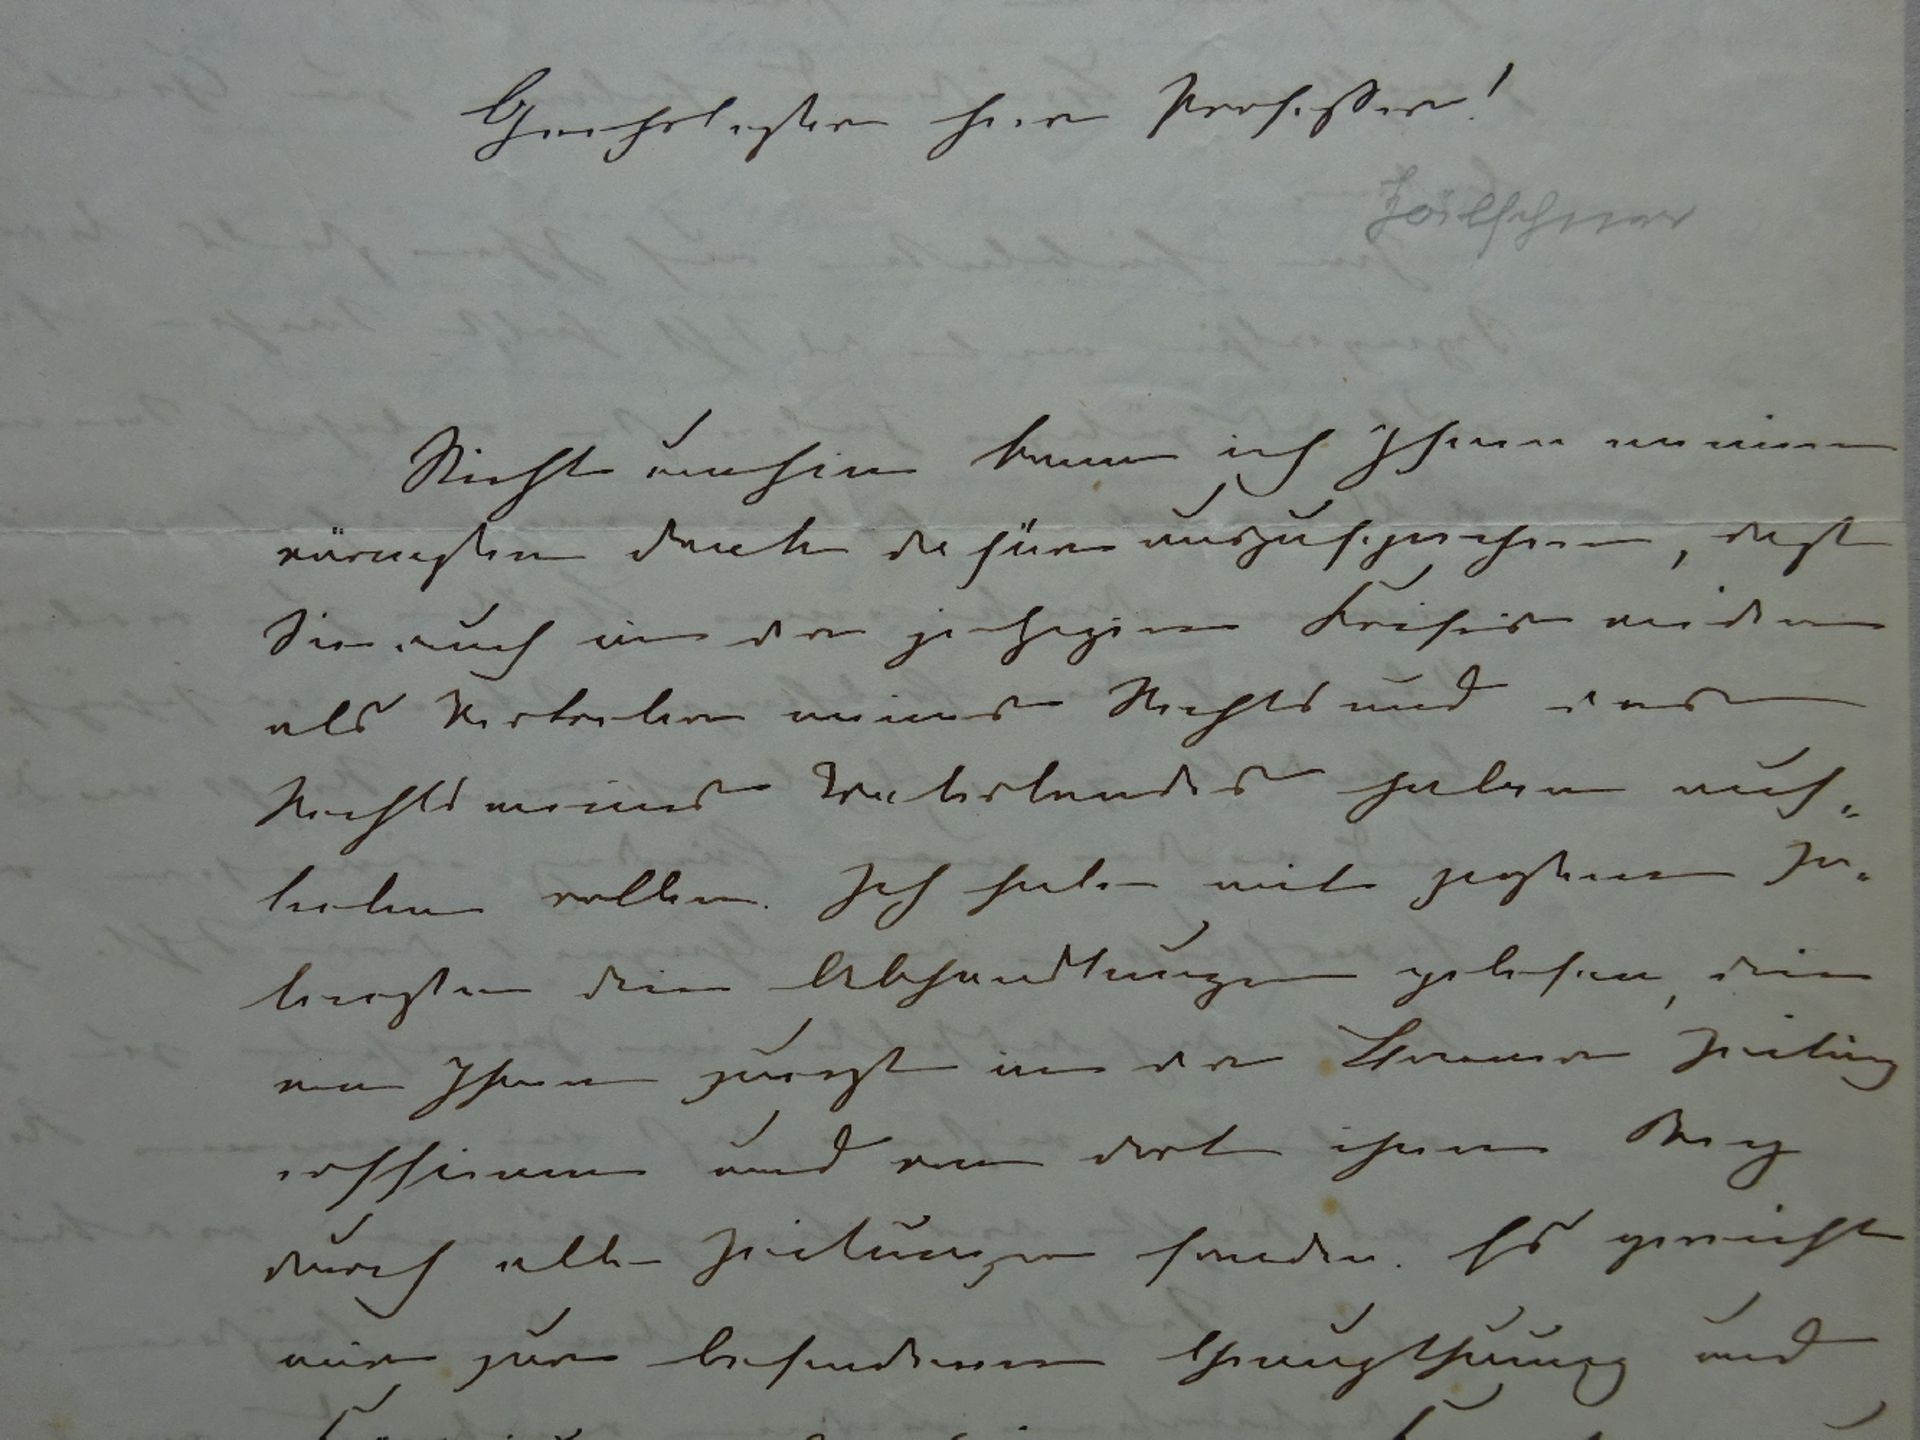 Geehrtester Herr Professor!
Hälschner
Nicht umhin kann ich Ihnen meinen
wärmsten Dank dafür auszusprechen, daß
Sie auch in der jetzigen Krisis wieder
als Vertreter meines Rechts und des
Rechts meines Vaterlandes haben auf-
treten wollen. Ich habe mit großem In-
teresse die Abhandlungen gelesen, die
von Ihnen zuerst in der Bonner Zeitung
erschienen und von dort ihren Weg
durch alle Zeitungen fanden. Es gereicht
mir zur besonderen Genugthuung und